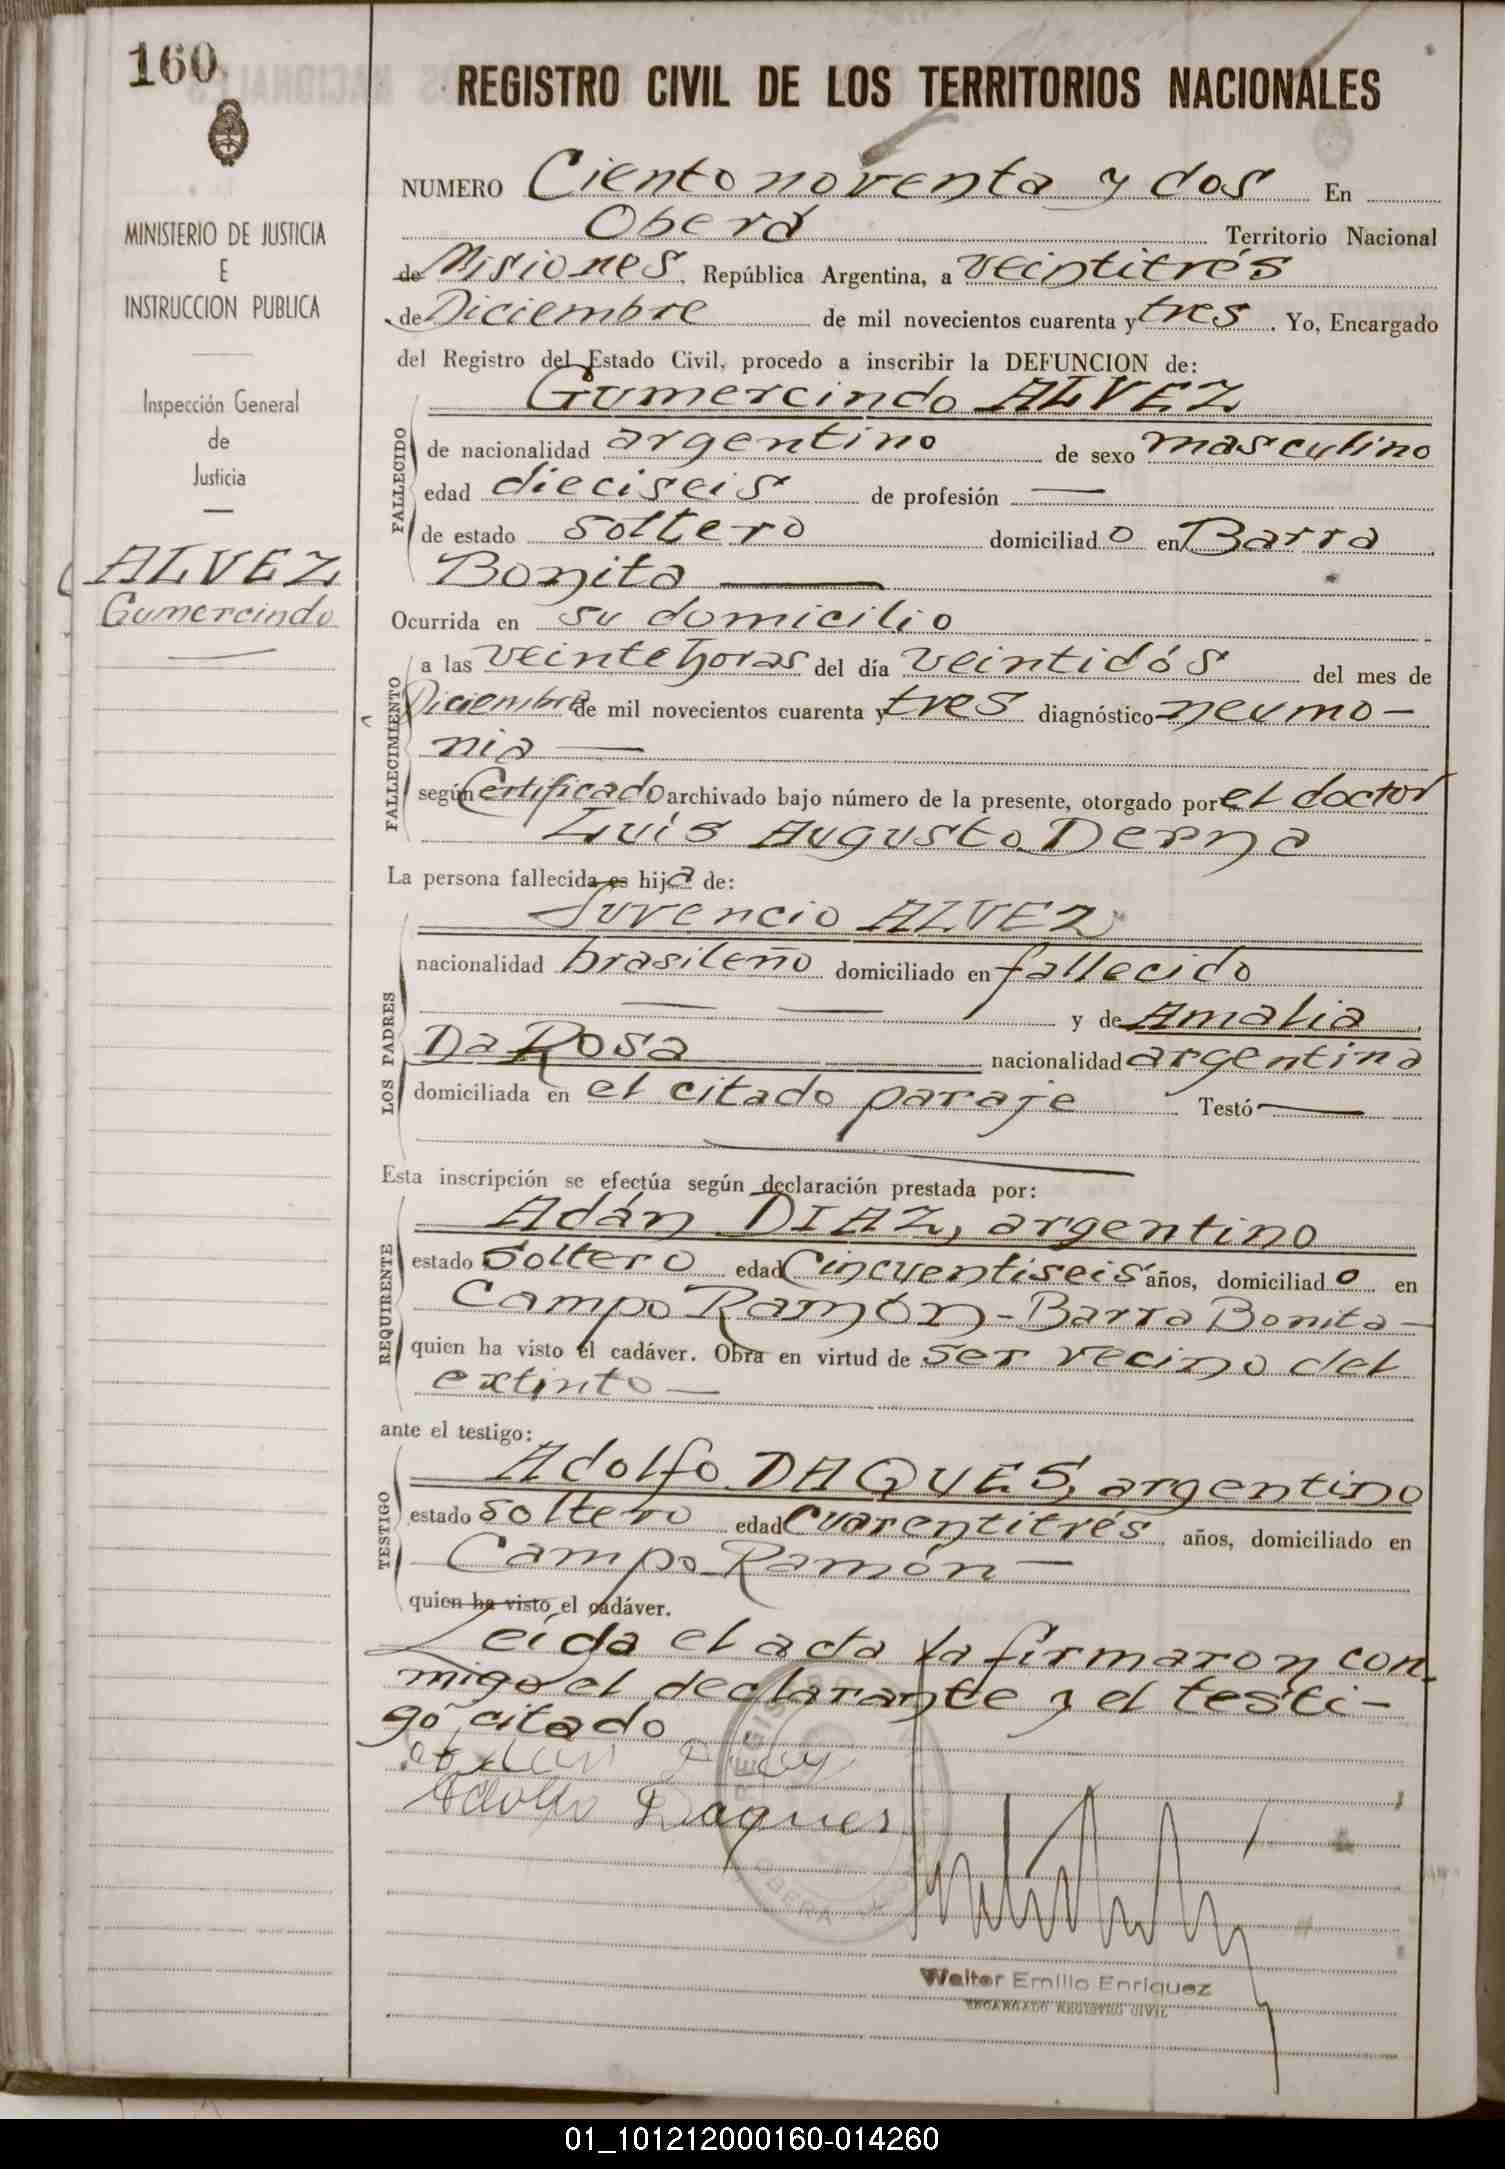 160
MINISTERIO DE JUSTICIA
E
INSTRUCCION PUBLICA
Inspección General
de
Justicia
ALVEZ
Gumercindo
REGISTRO CIVIL DE LOS TERRITORIOS NACIONALES
NUMERO Ciento noventa y dos En
Oberá Territorio Nacional
de Misiones, República Argentina, a veintitrés
de Diciembre de mil novecientos cuarenta y tres. Yo, Encargado
del Registro del Estado Civil, procedo a inscribir la DEFUNCION de:
Gumercindo ALVEZ
FALLECIDO
de nacionalidad argentino de sexo masculino
edad dieciseis de profesión —
de estado soltero domiciliado en Barra
Bonita —
Ocurrida en su domicilio
FALLECIMIENTO
a las veinte horas del día veintidós del mes de
Diciembre de mil novecientos cuarenta y tres diagnóstico neumo-
nia —
según Certificado archivado bajo número de la presente, otorgado por el doctor
Luis Augusto Derna
La persona fallecida es hija de:
LOS PADRES
Juvencio ALVEZ
nacionalidad brasileño domiciliado en fallecido
— — y de Amalia
Da Rosa nacionalidad argentina
domiciliada en el citado paraje Testó —
Esta inscripción se efectúa según declaración prestada por:
REQUIRENTE
Adán DIAZ, argentino
estado soltero edad Cincuentiseis años, domiciliado en
Campo Ramón - Barra Bonita -
quien ha visto el cadáver. Obra en virtud de ser vecino del
extinto —
ante el testigo:
TESTIGO
Adolfo DAQUES, argentino
estado soltero edad Cuarentitrés años, domiciliado en
Campo Ramón —
quien ha visto el cadáver.
Leída el acta la firmaron con-
migo el declarante y el testi-
go citado
Adolfo Daques
REGIS
OBERA
Walter Emilio Enriquez
ENCARGADO REGISTRO CIVIL
01_101212000160-014260